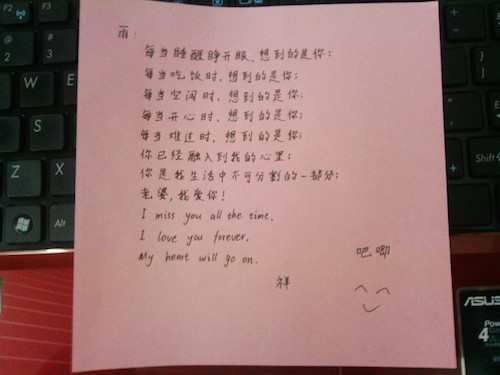 雨：
每当睡醒睁开眼，想到的是你；
每当吃饭时，想到的是你；
每当空闲时，想到的是你；
每当开心时，想到的是你；
每当难过时，想到的是你；
你已经融入到我的心里；
你是我生活中不可分割的一部分；
老婆，我爱你！
I miss you all the time.
I love you forever.
My heart will go on.
吧唧
祥
F2
F3
W
E
S
Z
X
Alt
Shift
ASUS
Pow
4